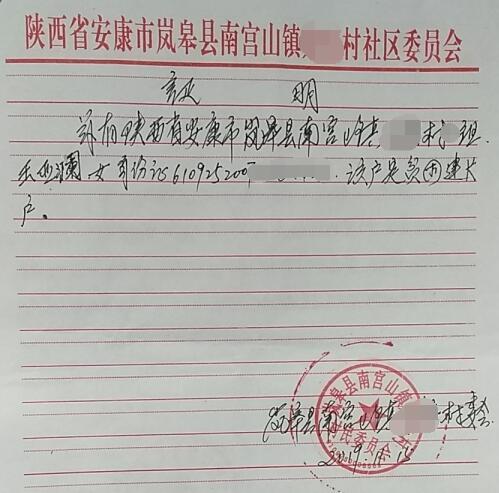 陕西省安康市岚皋县南宫山镇 村社区委员会
证 明
兹有陕西省安康市岚皋县南宫山镇 村 组
女身份证610925200 该户是贫困建档
户。
岚皋县南宫山镇 村委会
2019.
岚皋县南宫山镇 村民委员会